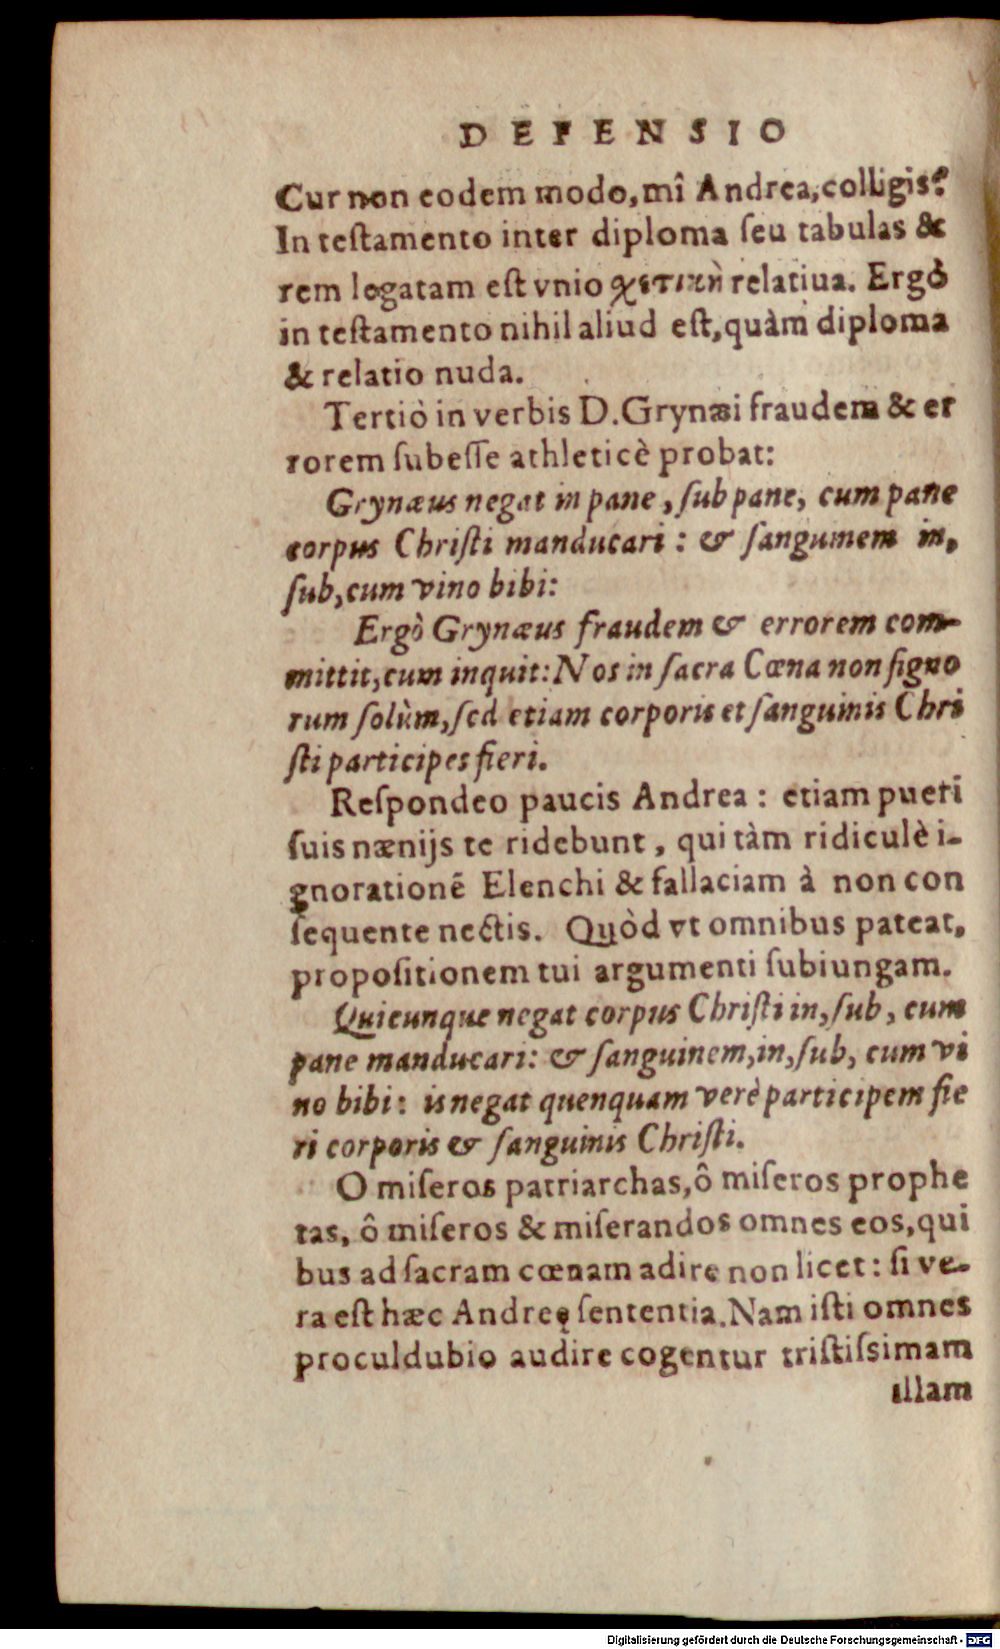 DEFENSIO
Cur non eodem modo, mî Andrea, colligis?
In testamento inter diploma seu tabulas &
rem legatam est vnio χετικὴ relatiua. Ergò
in testamento nihil aliud est, quàm diploma
& relatio nuda.
Tertiò in verbis D. Grynæi fraudem & er
rorem subesse athleticè probat:
Grynæus negat in pane, sub pane, cum pane
corpus Christi manducari: & sanguinem in,
sub, cum vino bibi:
Ergò Grynæus fraudem & errorem com-
mittit, cum inquit: Nos in sacra Cœna non signo
rum solùm, sed etiam corporis et sanguinis Chri
sti participes fieri.
Respondeo paucis Andrea: etiam pueri
suis nænijs te ridebunt, qui tàm ridiculè i-
gnorationẽ Elenchi & fallaciam à non con
sequente nectis. Quòd vt omnibus pateat,
propositionem tui argumenti subiungam.
Quicunque negat corpus Christi in, sub, cum
pane manducari: & sanguinem, in, sub, cum vi
no bibi: is negat quenquam verè participem fie
ri corporis & sanguinis Christi.
O miseros patriarchas, ô miseros prophe
tas, ô miseros & miserandos omnes eos, qui
bus ad sacram cœnam adire non licet: si ve-
ra est hæc Andreę sententia. Nam isti omnes
proculdubio audire cogentur tristissimam
illam
Digitalisierung gefördert durch die Deutsche Forschungsgemeinschaft - DFG